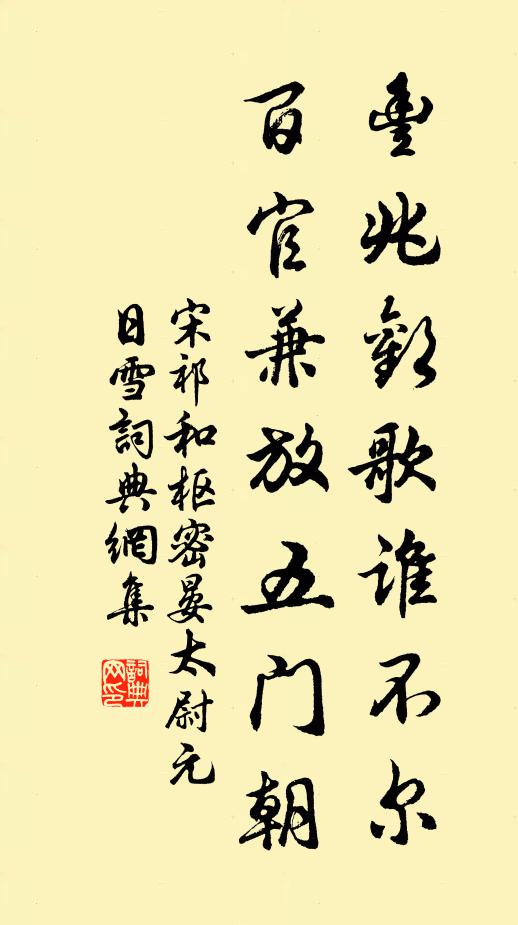 豊兆歡歌誰不尔
百官兼放五门朝
宋祁和枢密晏太尉元
日雪詞典網集
詞典网印